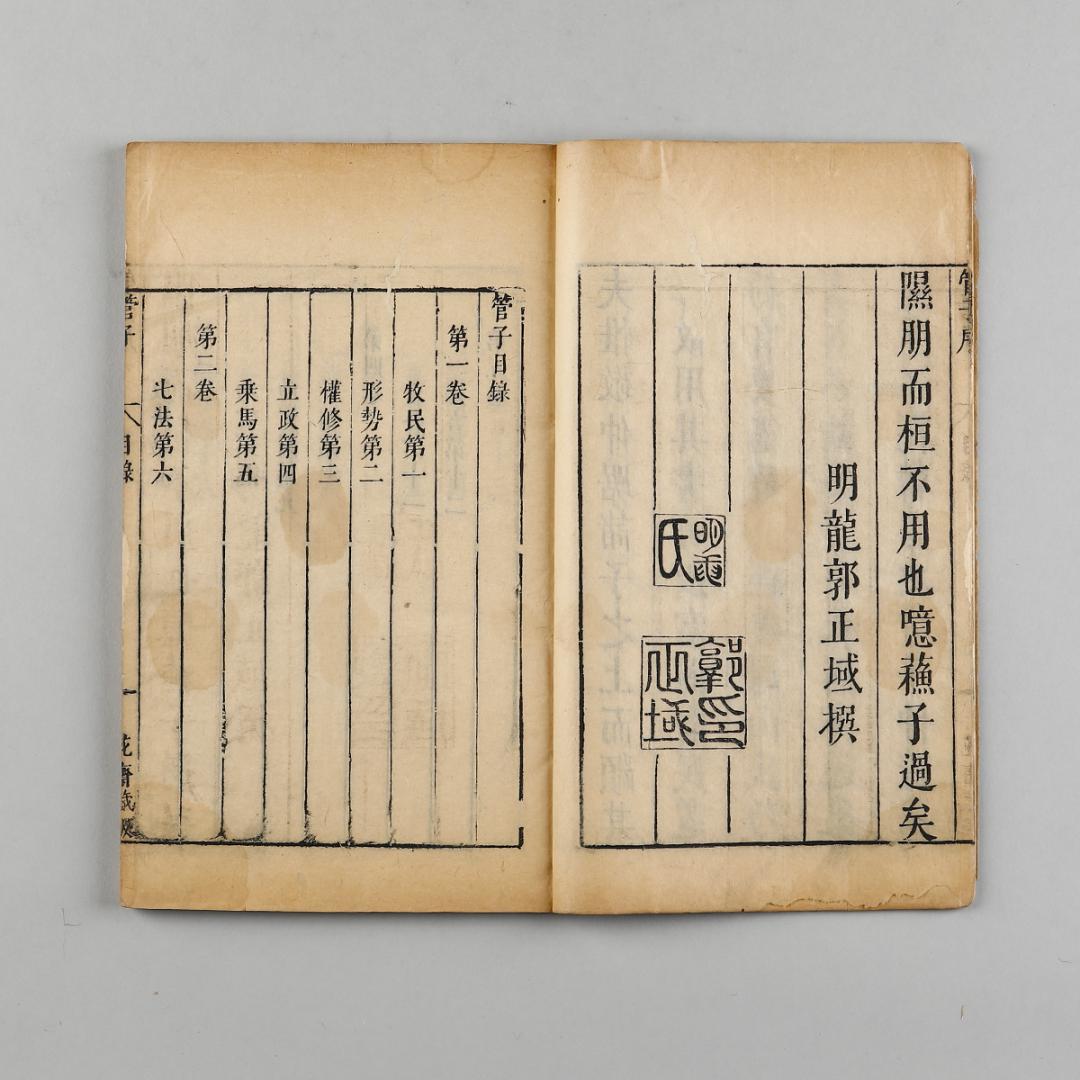 隰朋而桓不用也噫蘓子過矣
明龍郭正域撰
明龍氏
郭正域印
管子目錄
第一卷
牧民第一
形勢第二
權修第三
立政第四
乘馬第五
第二卷
七法第六
管子
目錄
一
花齋藏板